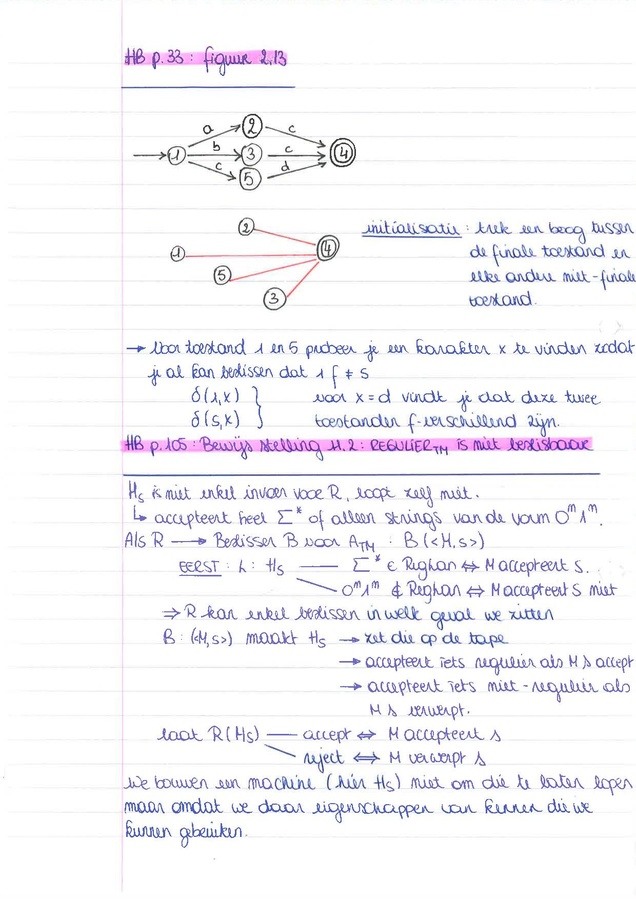 HB p.33: figuur 2.13
a
2
c
1
b
3
c
4
c
5
d
2
4
1
5
3
initialisatie: trek een boog tussen
de finale toestand en
elke andere niet-finale
toestand.
→ Voor toestand 1 en 5 probeer je een karakter x te vinden zodat
je al kan beslissen dat 1 f ≠ 5
δ(1,x) } voor x=d vindt je dat deze twee
δ(5,x) } toestanden f-verschillend zijn.
HB p.105: Bewijs stelling 4.2: REGULIER_TM is niet beslisbaar
H_s is niet enkel invoer voor R, loopt zelf niet.
↳ accepteert heel Σ* of alleen strings van de vorm 0^n 1^n.
Als R → Beslisser B voor A_TM : B(<M,s>)
EERST: L: H_s — Σ* ∈ Reglan ⇔ M accepteert s.
0^n1^n ∉ Reglan ⇔ M accepteert s niet
⇒ R kan enkel beslissen in welk geval we zitten
B: (<M,s>) maakt H_s → zet die op de tape
→ accepteert iets regulier als M s accept
→ accepteert iets niet-regulier als
M s verwerpt.
laat R(H_s) — accept ⇔ M accepteert s
reject ⇔ M verwerpt s
We bouwen een machine (hier H_s) niet om die te laten lopen
maar omdat we daar eigenschappen van kennen die we
kunnen gebruiken.